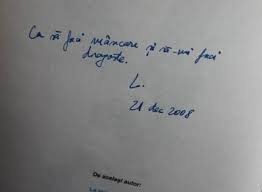 Ca să faci mâncare și să-mi faci
dragoste.
L.
21 dec 2008
De același autor: